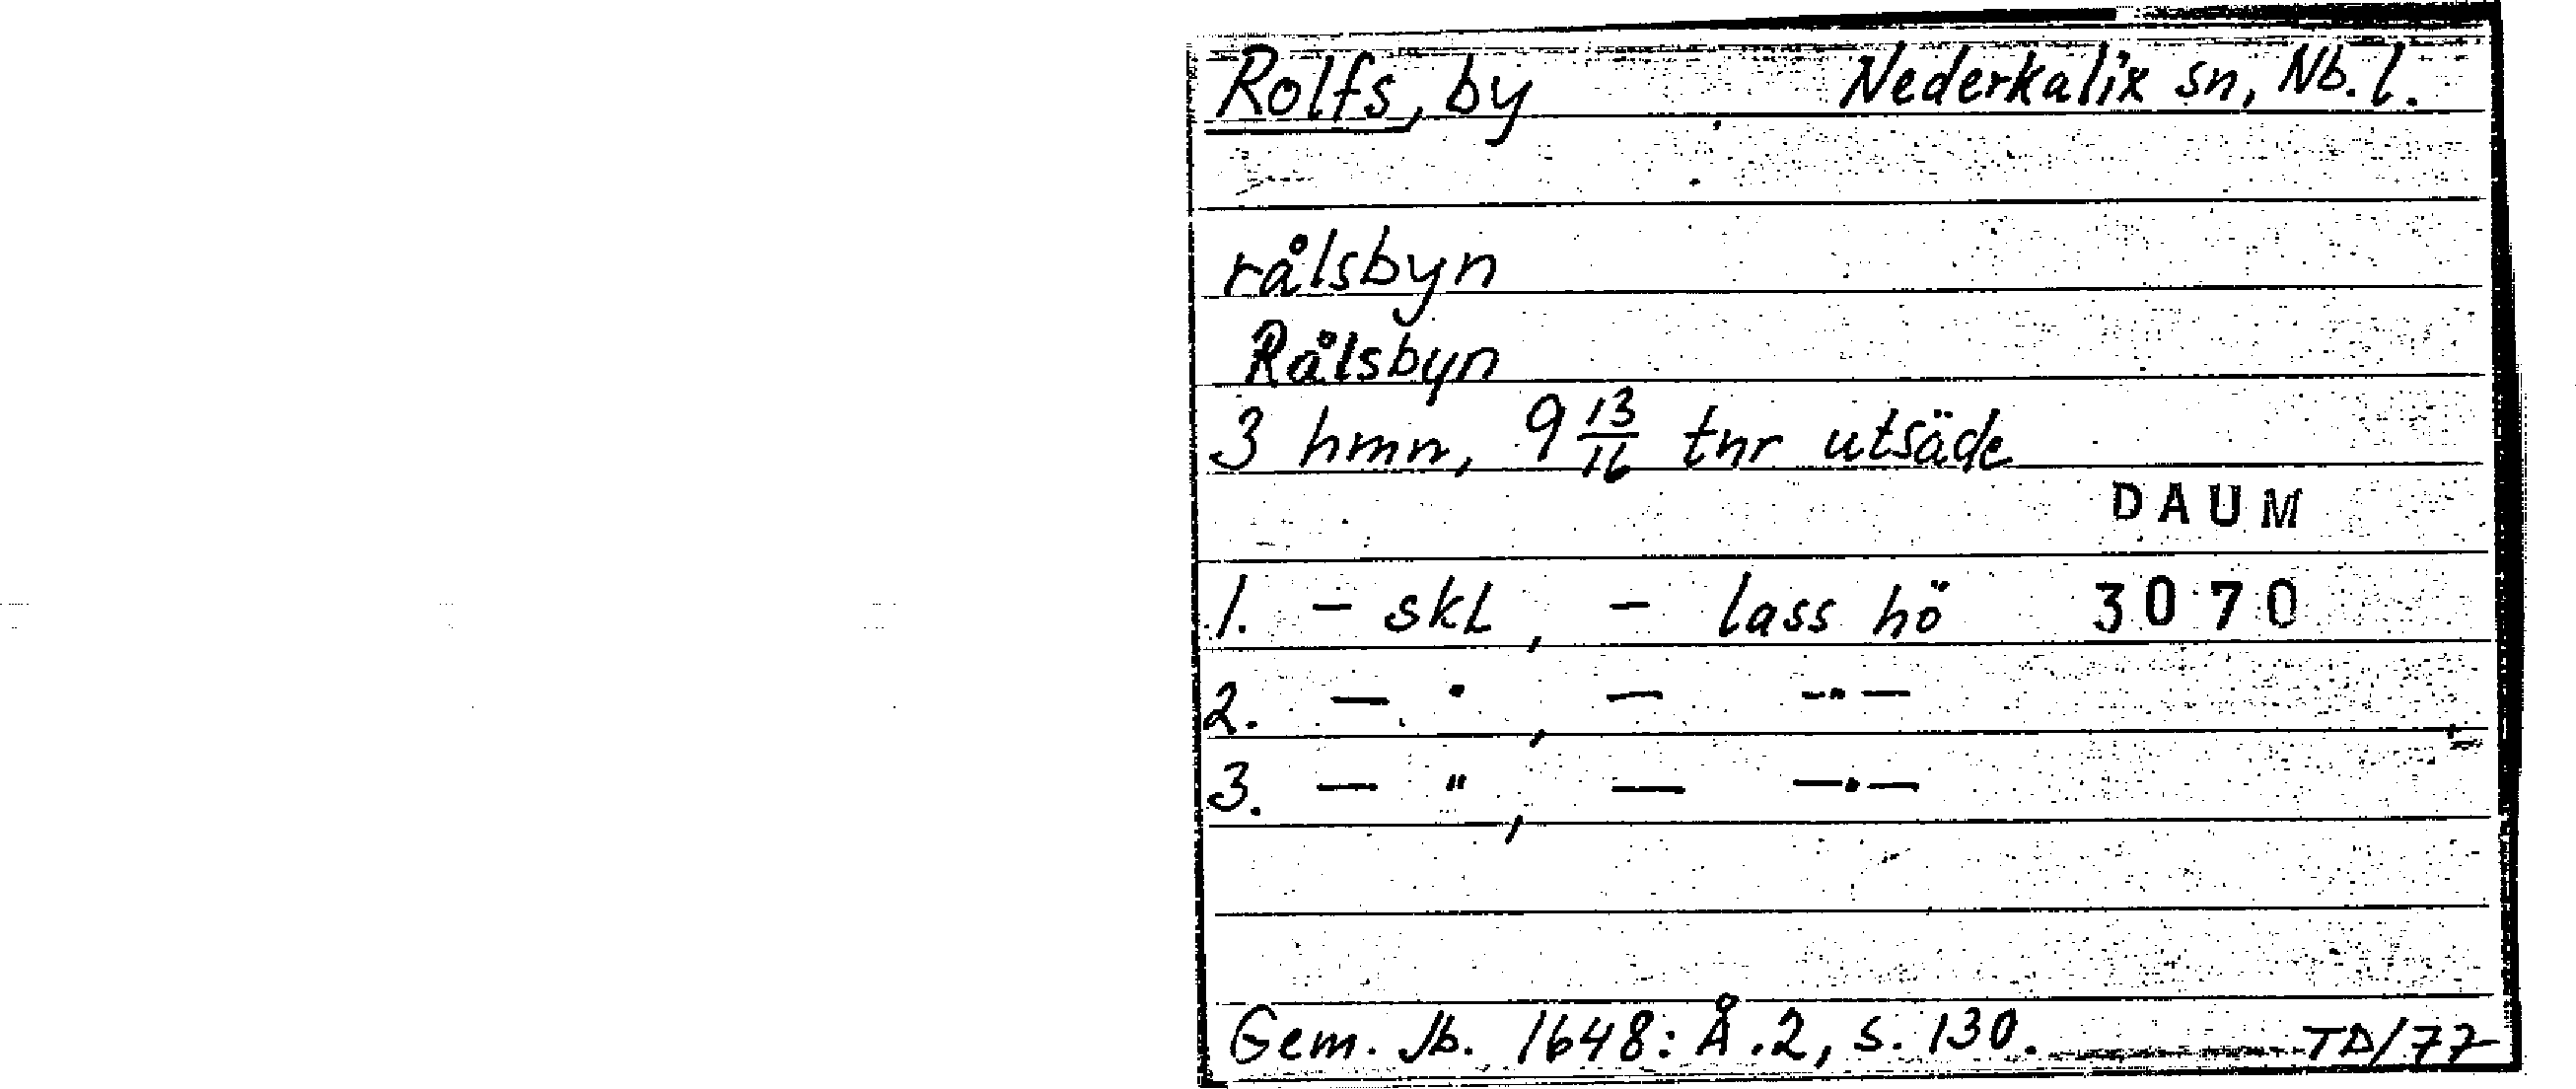 Rolfs, by Nederkalix sn, Nb. l.
rålsbyn
Rålsbyn
3 hmn, 9 13/16 tnr utsäde
DAUM
1. - skl, - lass hö 3070
2. — " , — -"-
3. — " , — -"-
Gem. Jb. 1648: Å.2, s. 130. TD/77